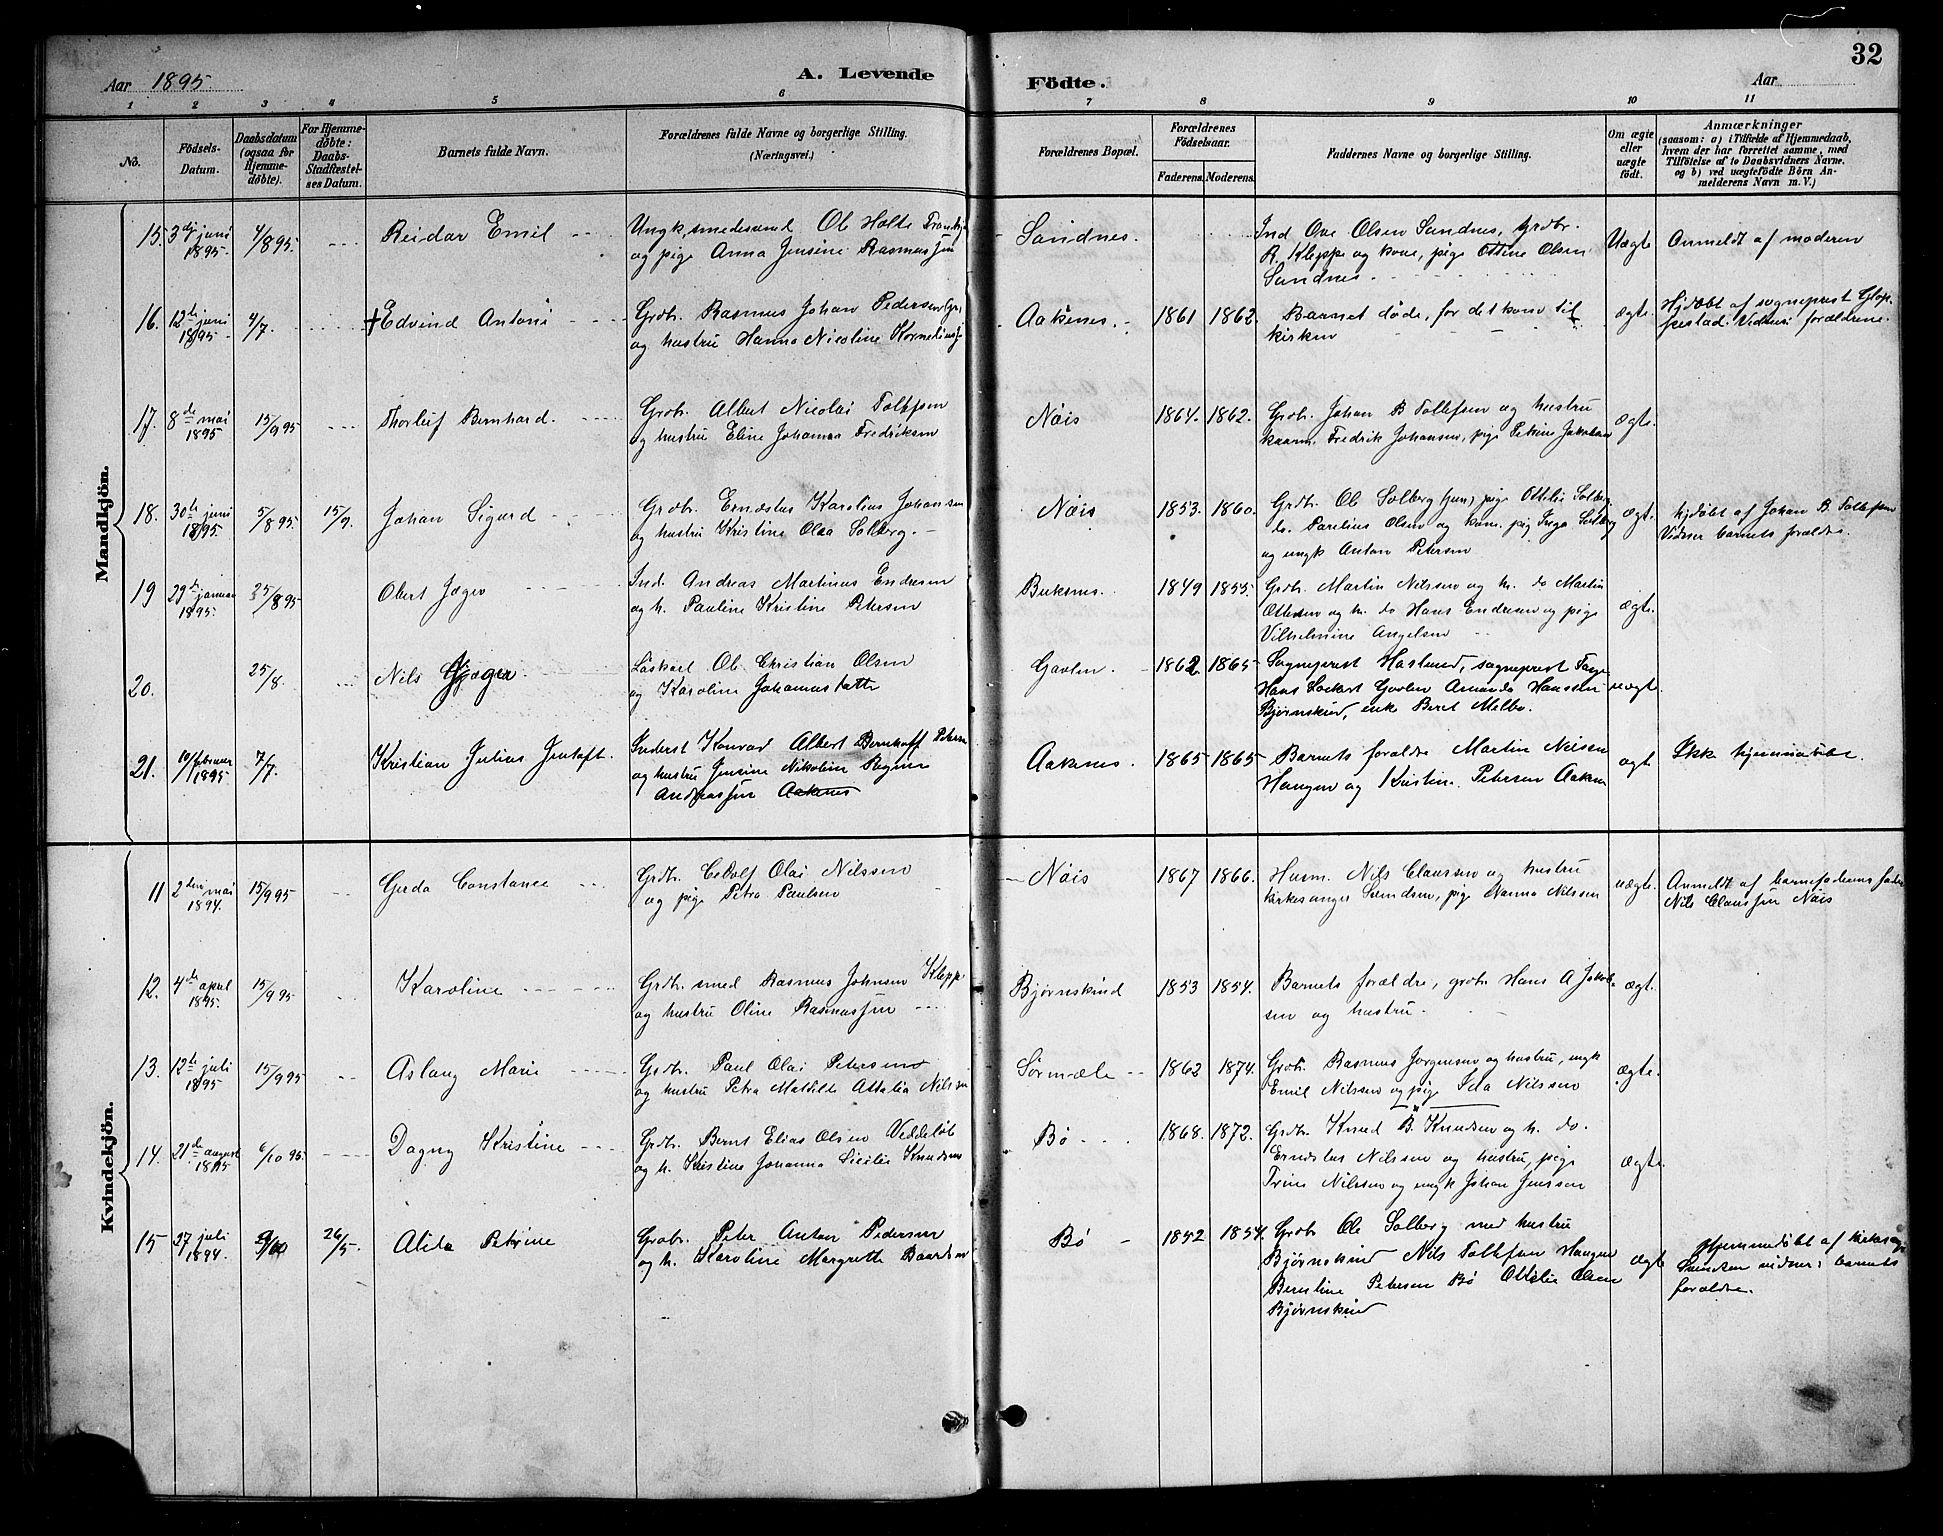 32
Aar 1895. A. Levende Födte. Aar
1 2 3 4 5 6 7 8 9 10 11
No. Födsels-Datum. Daabsdatum (ogsaa for Hjemme-döbte). For Hjemme-döbte: Daabs-Stadfæstel-ses Datum. Barnets fulde Navn. Forældrenes fulde Navne og borgerlige Stilling. (Næringsvei.) Forældrenes Bopæl. Forældrenes Födselsaar. Faderens. Moderens. Faddernes Navne og borgerlige Stilling. Om ægte eller uægte födt. Anmærkninger (saasom: a) i Tilfælde af Hjemmedaab, hvem der har forrettet samme, med Tilföielse af to Daabsvidners Navne, og b) ved uægtefödte Börn An-melderens Navn m. V.)
Mandkjön.
15. 3dj juni 1895. 4/8 95. Reidar Emil Ungk. smedesvend Ol Holte
og pige Anna Jensine Rasmussen
Sandnes. Ind Ove Olsen Sandnes, Grdbr.
R. Kleppe og kone, pige Ottine Olsen
Sandnes
Uægte Anmeldt af moderen
16. 12te juni 1895 4/7. + Edvind Antoni Grdbr. Rasmus Johan Pedersen
og hustru Hanna Nicoline
Aakenes. 1861 1862. Barnet døde, før det kom til
kirken
ægte. Hjdøbt af sogneprest
Vidner: forældrene.
17. 8de mai 1895 15/9 95 Thorleif Bernhard. Grdbr. Albert Nicolai Tollefsen
og hustru Eline Johanna Fredriksen
Nøis 1864. 1862. Grdbr. Johan B Tollefsen og hustru
Fredrik Johansen, pige Petrine Jakobsen
ægte.
18. 30te juni 1895. 5/8 95. 15/9. Johan Sigurd Grdbr. Ernæstus Karolius Johansen
og hustru Kristine Olea Solberg.
Nøis 1853. 1860. Grdbr. Ol Solberg jun, pige Ottelie Solberg
do. Paulius Olsen og kone. pig Inga Solberg
og ungk Anton Petersen
ægte. hjdøbt af Johan B. Tollefsen
Vidner barnets forældre.
19 29de januar 1895. 25/8 95 Obert Jøger Ind. Andreas Martinus Endresen
og h. Pauline Kristine Petersen
Buksnes. 1849 1855. Grdbr. Martin Nilssen og h. do Martin
Ottesen og h. do Hans Endresen og pige
Vilhelmine Angelsen
ægte.
20. 25/8. Nils Løskarl Ole Christian Olsen
og Karoline Johannesdatter
Gavlen. 1862 1865 Sogneprest Haslund, sogneprest
Hans Lockert Gavlen Amanda Hanssen
Bjørnskind, enke Beret Melbo.
uægte.
21. februar 1895 7/7. Kristian Julius Inderst Konrad Albert Bernhoff Petersen
og hustru Jensine Nikoline Regine
Andreassen Aakenes
Aakenes. 1865 1865 Barnets forældre Martin Nilsen
Haugen og Kristine Petersen
ægte Ikk hjemmedøbt.
Kvindekjön.
11 2den mai 1894. 15/9 95 Gerda Constance Grdbr. Edolf Olai Nilssen
og pige Petra Paulsen
Nøis 1867 1866. Husm. Nils Claussen og hustru
kirkesanger Svendsen, pige Hanna Nilssen
uægte. Anmeldt af barnefaderens fader
Nils Claussen Nøis
12. 4de april 1895. 15/9 95 Karoline Grdbr. smed Rasmus Johnsen Klepp
og hustru Oline Rasmussen
Bjørnskind 1853 1854. Barnets forældre, grdbr Hans A Jakob-
sen og hustru.
ægte.
13. 12te juli 1895 15/9 95 Aslaug Marie Grdbr. Paul Olai Petersen
og hustru Petra Mathilde Attalia Nilssen
Sørmæle 1862 1874. Grdbr. Rasmus Jørgensen og hustru, ungk
Emil Nilssen og pige Ida Nilssen
ægte.
14. 21de august 1895 6/10 95. Dagny Kristine Grdbr. Bernt Elias Olsen
og h. Kristine Johanna Sicilie Knudsen
Bø 1868. 1872. Grdbr. Knud B. Knudsen og h. do.
Ernestus Nilssen og hustru, pige
Trine Nilssen og ungk Johan Jenssen
ægte.
15 27 juli 1894. 26/5. Alida Petrine Grdbr. Peter Anton Pedersen
og h. Karoline Margrethe
Bø 1852 1854. Grdbr Ole Solberg med hustru
Bjørnskind Nils Tollefsen Haugen
Bentine Petersen Bø Ottilie Olsen
Bjørnskind
ægte Hjemmedøbt af kirkesang
Svendsen vidner: barnets
forældre.